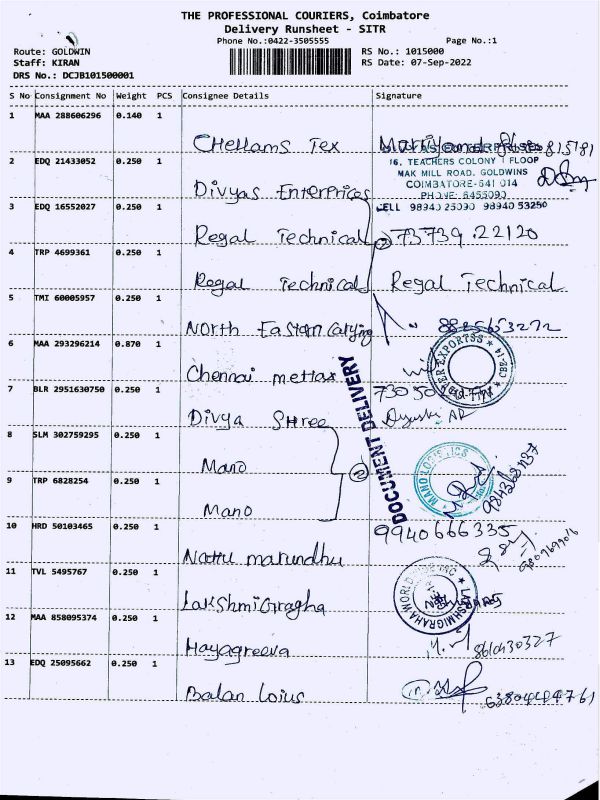 THE PROFESSIONAL COURIERS, Coimbatore
Delivery Runsheet - SITR
Phone No.:0422-3505555 Page No.:1
Route: GOLDWIN RS No.: 1015000
Staff: KIRAN RS Date: 07-Sep-2022
DRS No.: DCJB101500001
S No Consignment No Weight PCS Consignee Details Signature
1 MAA 288606296 0.140 1
Chellams Tex
2 EDQ 21433052 0.250 1
16, TEACHERS COLONY I FLOOP
MAK MILL ROAD. GOLDWINS
COIMBATORE-641 014
Divyas Enterprices PHONE: 6455090
3 EDQ 16552027 0.250 1 CELL 98940 25090 98940 53250
Regal Technical 2 73739 22120
4 TRP 4699361 0.250 1
Regal Technical Regal Technical
5 TMI 60005957 0.250 1
North Eastern Carying
6 MAA 293296214 0.870 1
Chennai mettax
7 BLR 2951630750 0.250 1
DOCUMENT DELIVERY
Divya Shree
8 SLM 302759295 0.250 1
Mano 2 MANO LOGISTICS
9 TRP 6828254 0.250 1
Mano
10 HRD 50103465 0.250 1 9940666335
Nattu marundhu
11 TVL 5495767 0.250 1
Lakshmigragha
12 MAA 858095374 0.250 1
Hayagreeva
13 EDQ 25095662 0.250 1
Balan Loius